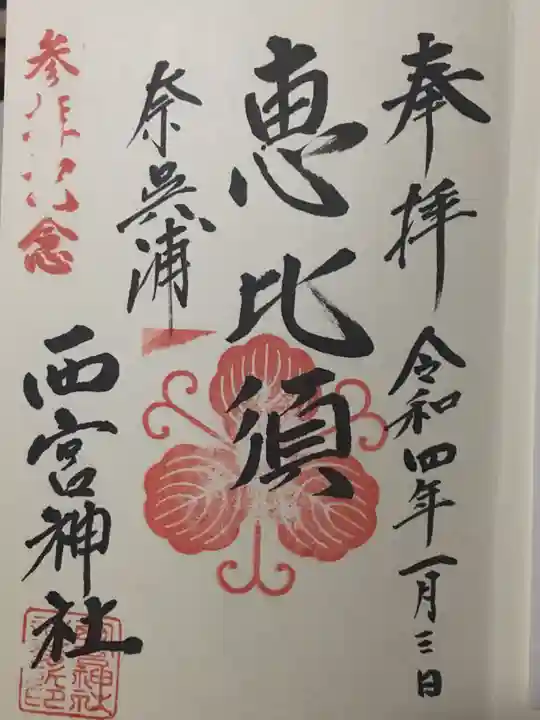 奉拝 令和四年一月三日
恵比須
奈呉浦
西宮神社
参拝記念